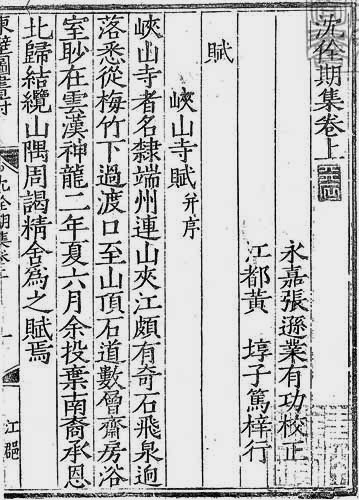 沈佺期集卷上
永嘉張遜業有功校正
江都黃 埻子篤梓行
賦
峽山寺賦 并序
峽山寺者名隸端州連山夾江頗有奇石飛泉迥
落悉從梅竹下過渡口至山頂石道數層齋房浴
室眇在雲漢神龍二年夏六月余投棄南裔承恩
北歸結纜山隅周謁精舍為之賦焉
東壁圖書府
沈佺期集卷上
一
江郡